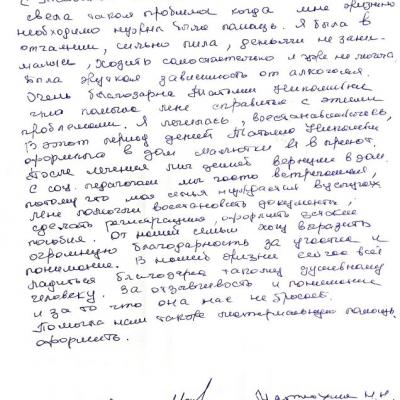 свела такая проблема когда мне жизненно
необходимо нужна была помощь. Я была в
отчаянии, сильно пила, деньгами не зани-
малась, ходить самостоятельно я уже не могла
Была жуткая зависимость от алкоголя.
Очень благодарна Татьяне Николаевне
что помогла мне справиться с этими
проблемами. Я лечилась, восстанавливалась,
В этот период детей Татьяна Николаевна
оформила в дом малютки и в приют,
После лечения мы детей вернули в дом.
С соц. педагогом мы часто встречались,
потому что моя семья нуждается в услугах
мне помогли восстановить документы,
сделать регистрацию, оформить детские
пособия. От нашей семьи хочу выразить
огромную благодарность за участие и
понимание. В нашей жизни сейчас всё
ладиться благодаря такому душевному
человеку. За отзывчивость и понимание
и за то что она нас не бросает.
Помогла нам также материальную помощь
оформить.